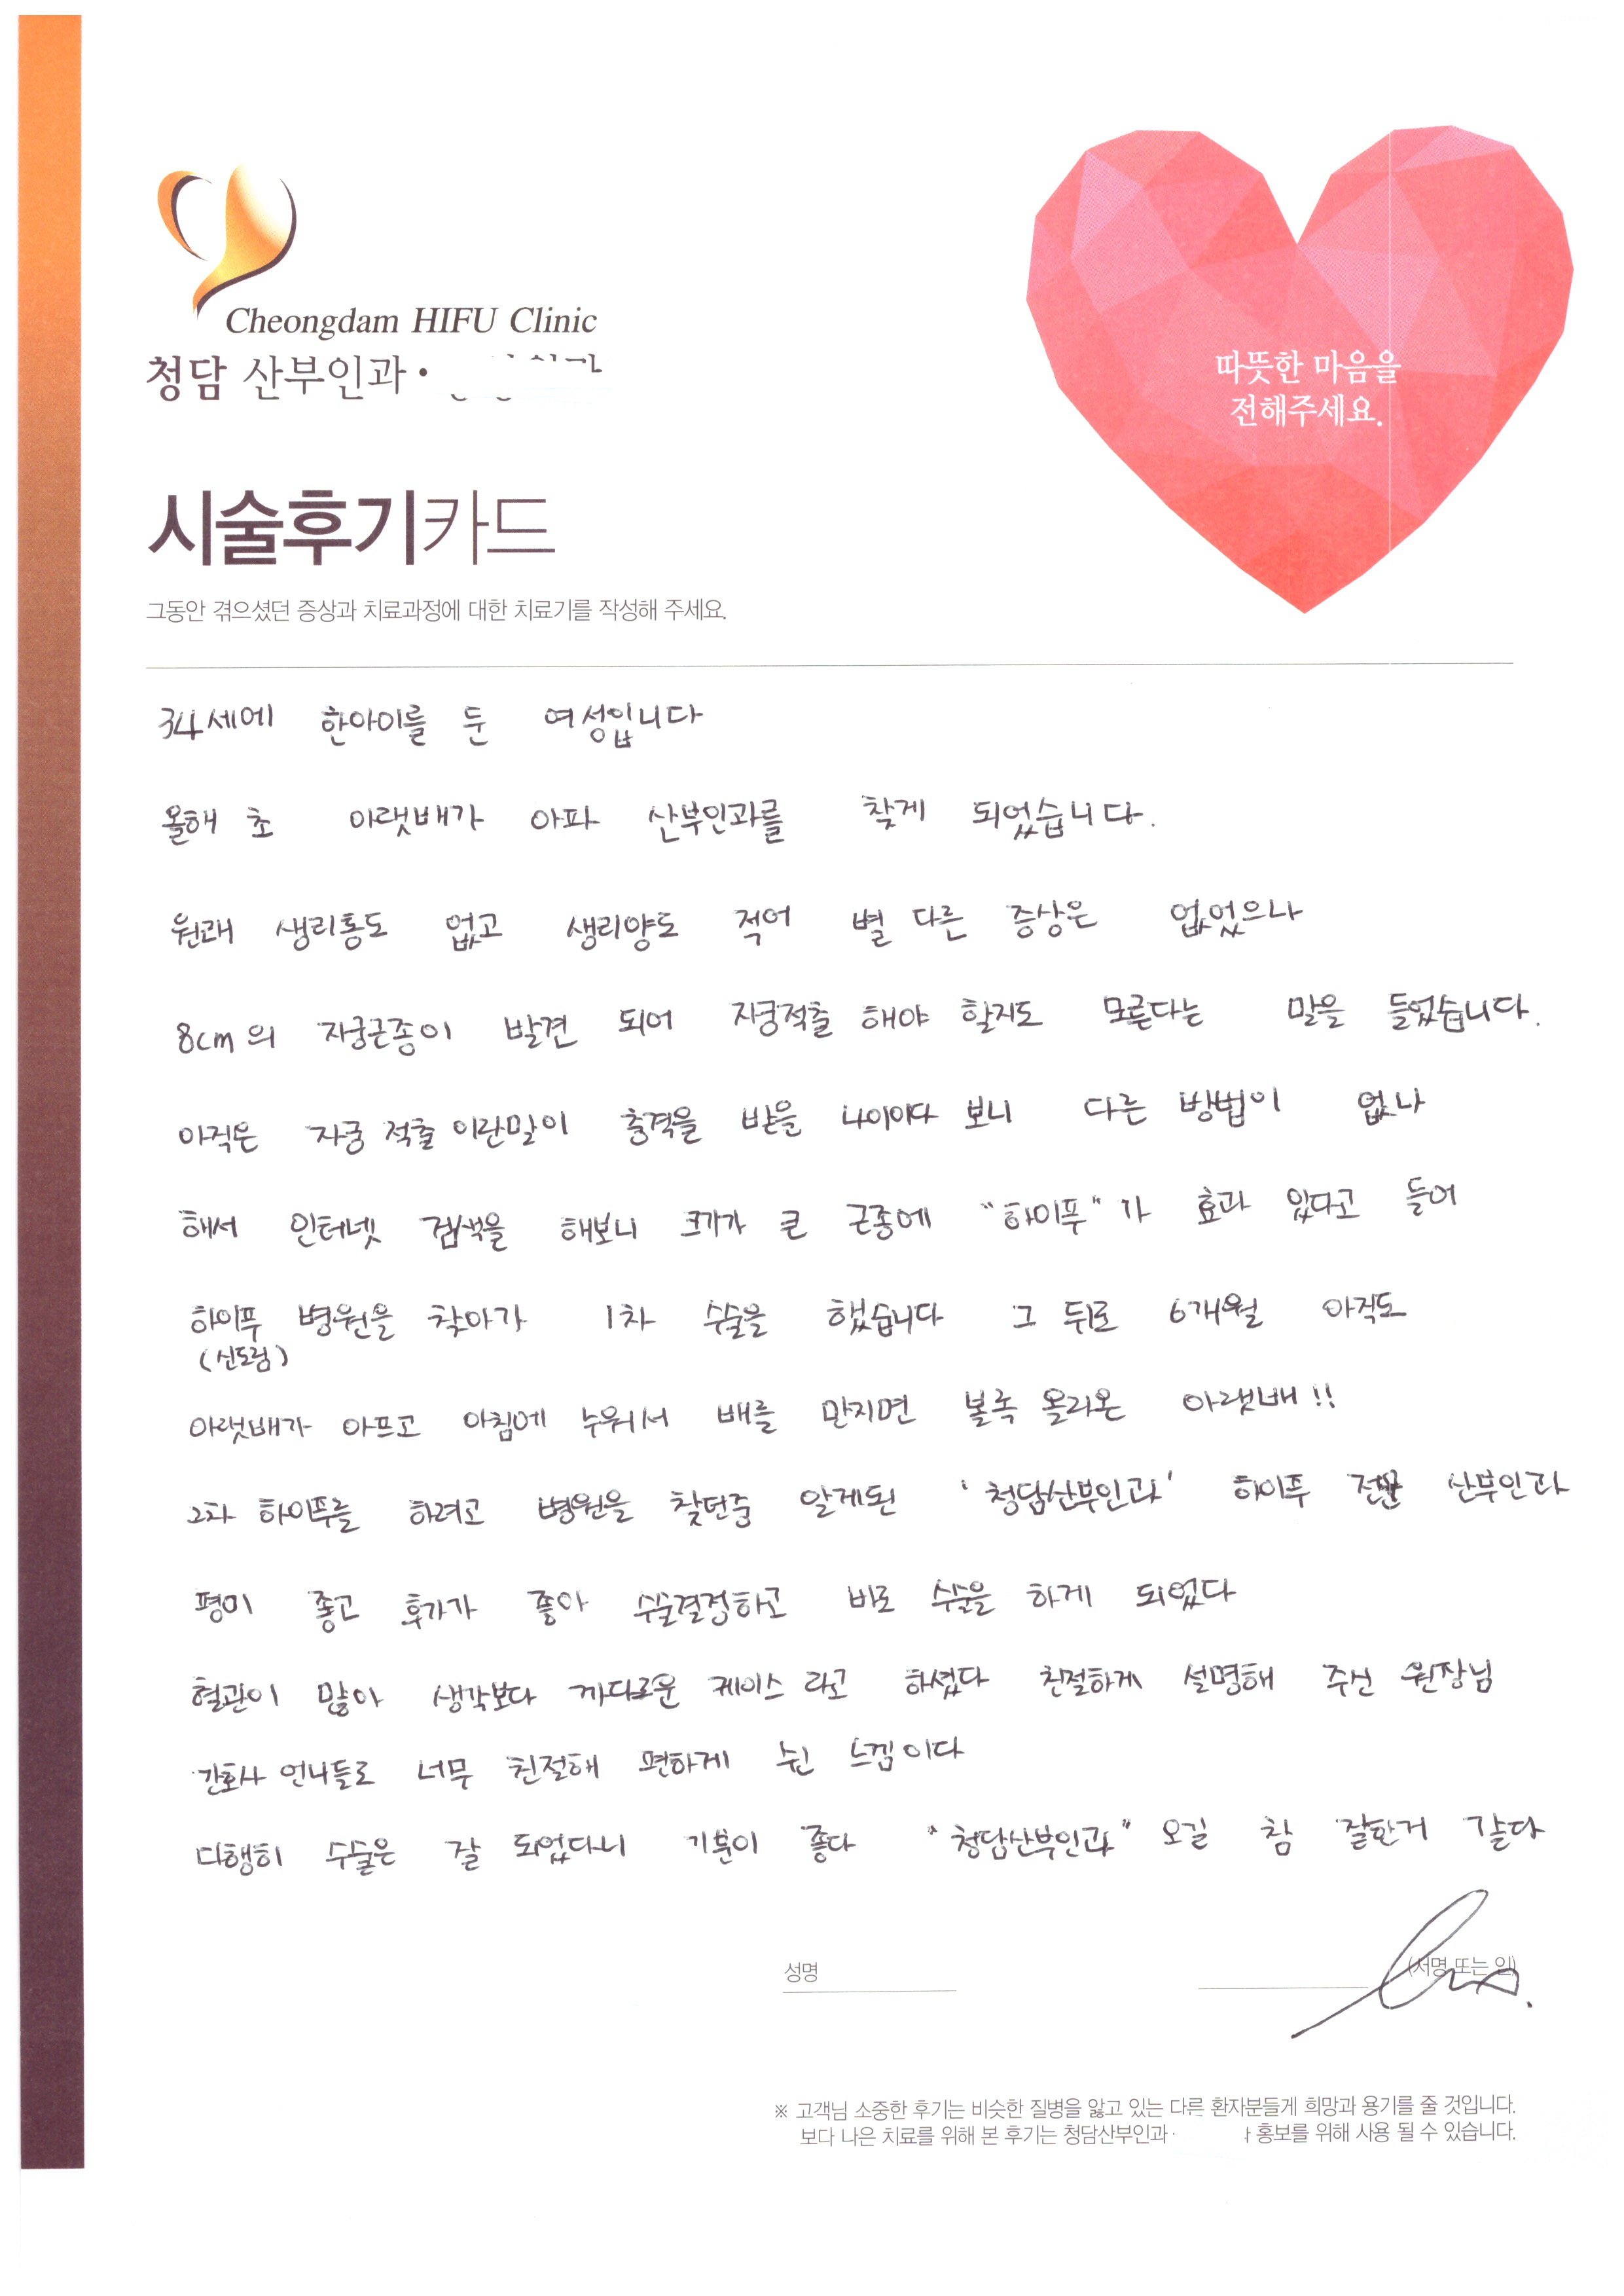 Cheongdam HIFU Clinic
청담 산부인과·
따뜻한 마음을
전해주세요.
시술후기카드
그동안 겪으셨던 증상과 치료과정에 대한 치료기를 작성해 주세요.
34세에 한아이를 둔 여성입니다
올해 초 아랫배가 아파 산부인과를 찾게 되었습니다.
원래 생리통도 없고 생리양도 적어 별 다른 증상은 없었으나
8cm의 자궁근종이 발견 되어 자궁적출 해야 할지도 모른다는 말을 들었습니다.
아직은 자궁 적출 이란말이 충격을 받을 나이이다 보니 다른 방법이 없나
해서 인터넷 검색을 해보니 크기가 큰 근종에 "하이푸"가 효과 있다고 들어
하이푸 병원을 찾아가 1차 수술을 했습니다 그 뒤로 6개월 아직도
(신도림)
아랫배가 아프고 아침에 누워서 배를 만지면 볼록 올라온 아랫배!!
2차 하이푸를 하려고 병원을 찾던중 알게된 '청담산부인과' 하이푸 전문 산부인과
평이 좋고 후기가 좋아 수술결정하고 바로 수술을 하게 되었다
혈관이 많아 생각보다 까다로운 케이스 라고 하셨다 친절하게 설명해 주신 원장님
간호사 언니들도 너무 친절해 편하게 쉰 느낌이다
다행히 수술은 잘 되었다니 기분이 좋다 "청담산부인과" 오길 참 잘한거 같다
성명
(서명 또는 인)
※ 고객님 소중한 후기는 비슷한 질병을 앓고 있는 다른 환자분들게 희망과 용기를 줄 것입니다.
보다 나은 치료를 위해 본 후기는 청담산부인과· 홍보를 위해 사용 될 수 있습니다.